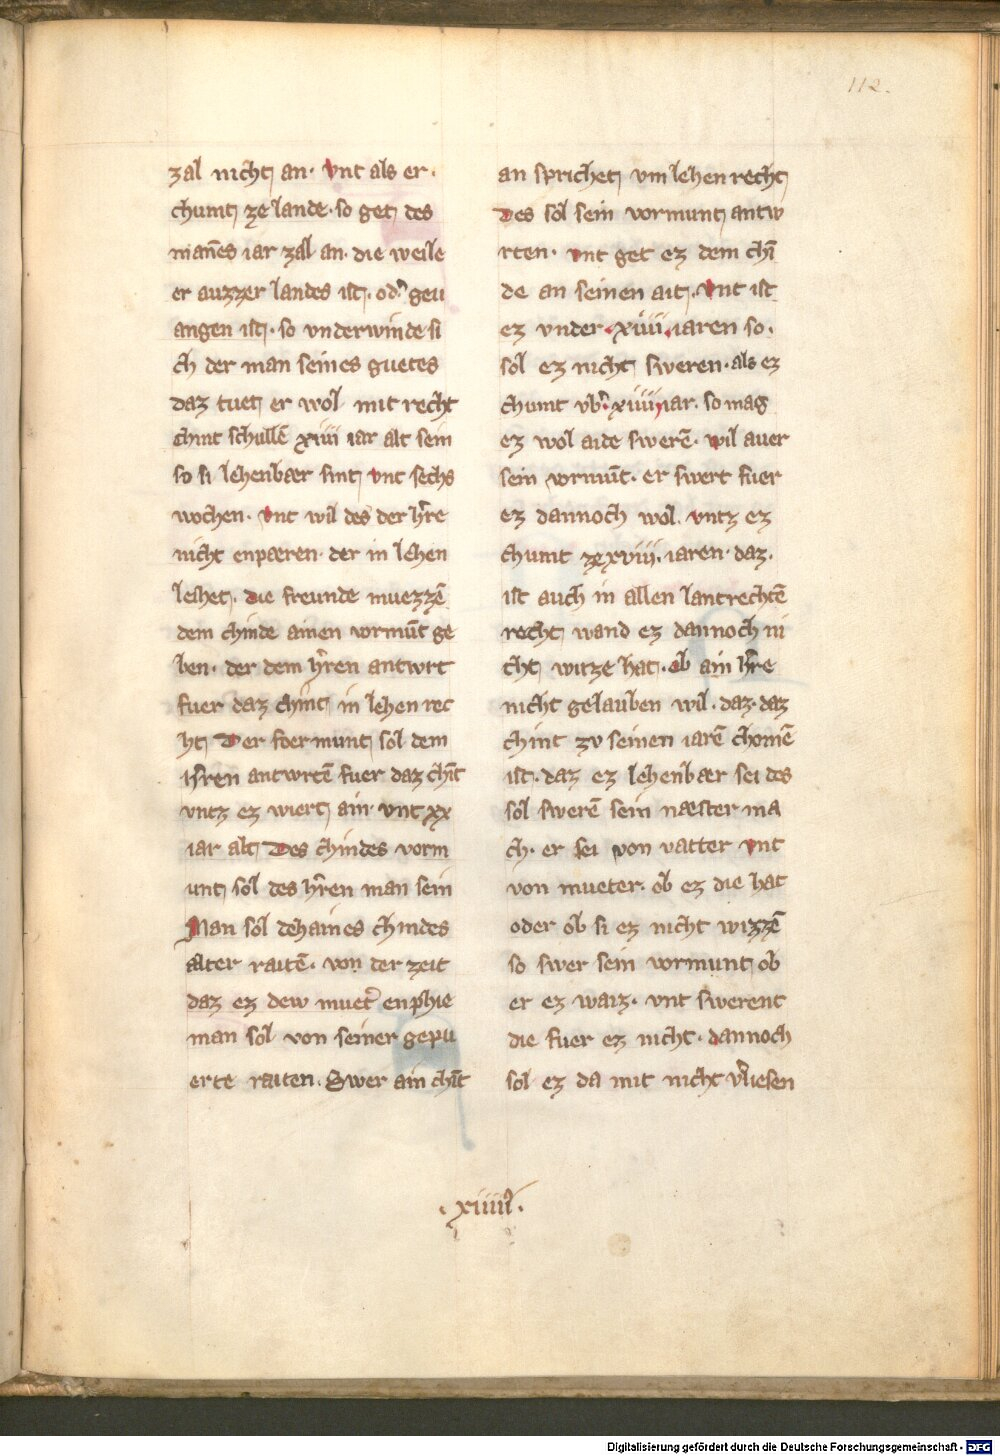 112.
zal nicht an. vnt als er.
chumt ze lande. so get des
mañes iar zal an. die weile
er auzzer landes ist. od͛ geu
angen ist. so vnderwinde si
ch der man seines guetes
daz tuet er wol mit recht
chint schullē xiiii iar alt sein
so si lehenbær sint vnt sechs
wochen. vnt wil des der h͛re
nicht enpæren. der in lehen
leihet. die freunde muezzē
dem chinde ainen vormūt ge
ben. der dem h͛ren antwrt
fuer daz chint in lehen rec
ht Der foermunt sol dem
isren antwrtē fuer daz chīt
vntz ez wiert ain. vnt xx
iar alt Des chindes vorm
unt sol des h͛ren man sein
Man sol dehaines chindes
alter raitē. von der zeit
daz ez dew muet͛ enphie
man sol von seiner gepu
erte raiten. Swer ain chīt
an sprichet vm lehen recht
Des sol sein vormunt antw
rten. vnt get ez dem chī
de an seinen ait. vnt ist
ez vnder. xiiii. iaren so.
sol ez nicht sweren. als ez
chumt vb͛. xiiii iar. so mag
ez wol aide swerē. wil auer
sein vormūt. er swert fuer
ez dannoch wol. vntz ez
chumt ze xviii. iaren. daz.
ist auch in allen lantrechtē
recht wand ez dannoch ni
cht witze hat. ob ain h͛re
nicht gelauben wil. daz. daz
chint zv seinen iarē chomē
ist. daz ez lehenbær sei des
sol swerē sein næster ma
ch. er sei von vatter vnt
von mueter. ob ez die hat
oder ob si ez nicht wizzē
so swer sein vormunt ob
er ez waiz. vnt swerent
die fuer ez nicht. dannoch
sol ez da mit nicht v͛liesen
. xiiii⁹.
Digitalisierung gefördert durch die Deutsche Forschungsgemeinschaft - DFG